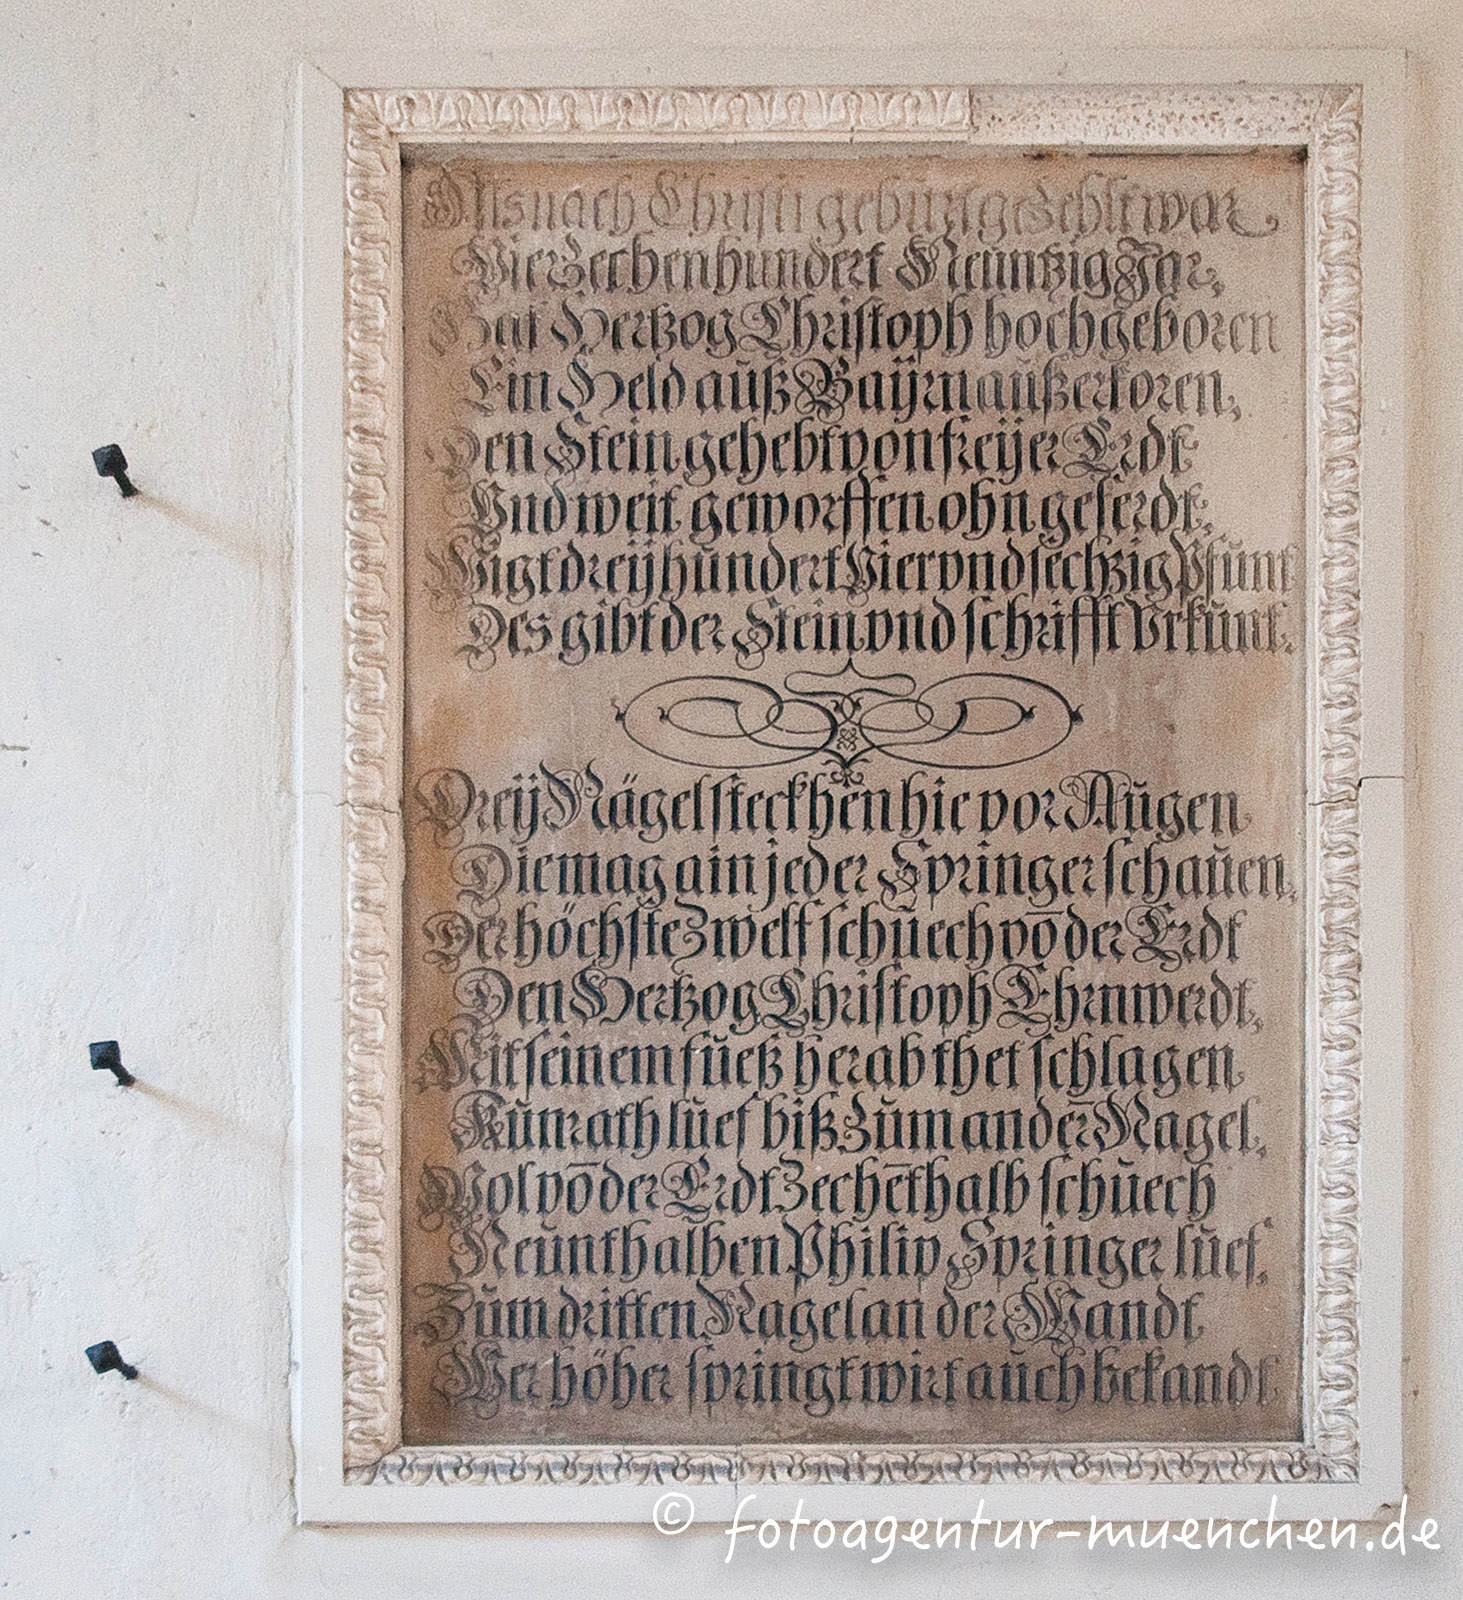 Als nach Christi gebürt gezehlt war
Vierzechenhundert Neüntzig Jar,
Hat Hertzog Christoph hochgeboren
Ein Held aüß Bayrn aüßerkoren,
Den Stein gehebt von freyer Erdt
Vnd weit geworffen ohn geferdt,
Wigt dreyhündert Vier vnd sechzig Pfünt
Des gibt der Stein vnd schrifft Vrkünt.
Dreÿ Nägel steckhen hie vor Aügen
Die mag ain jeder Springer schaüen,
Der höchste Zwelf schüech vō der Erdt
Den Hertzog Christoph Ehrnwerdt,
Mit seinem füeß herab thet schlagen
Künrath lüef biß Züm andeřn Nagel,
Wol vō der Erdt Zechēthalb schüech
Neünthalben Philip Springer lüef,
Züm dritten Nagel an der Wandt
Wer höher springt wirt aüch bekandt.
© fotoagentur-muenchen.de